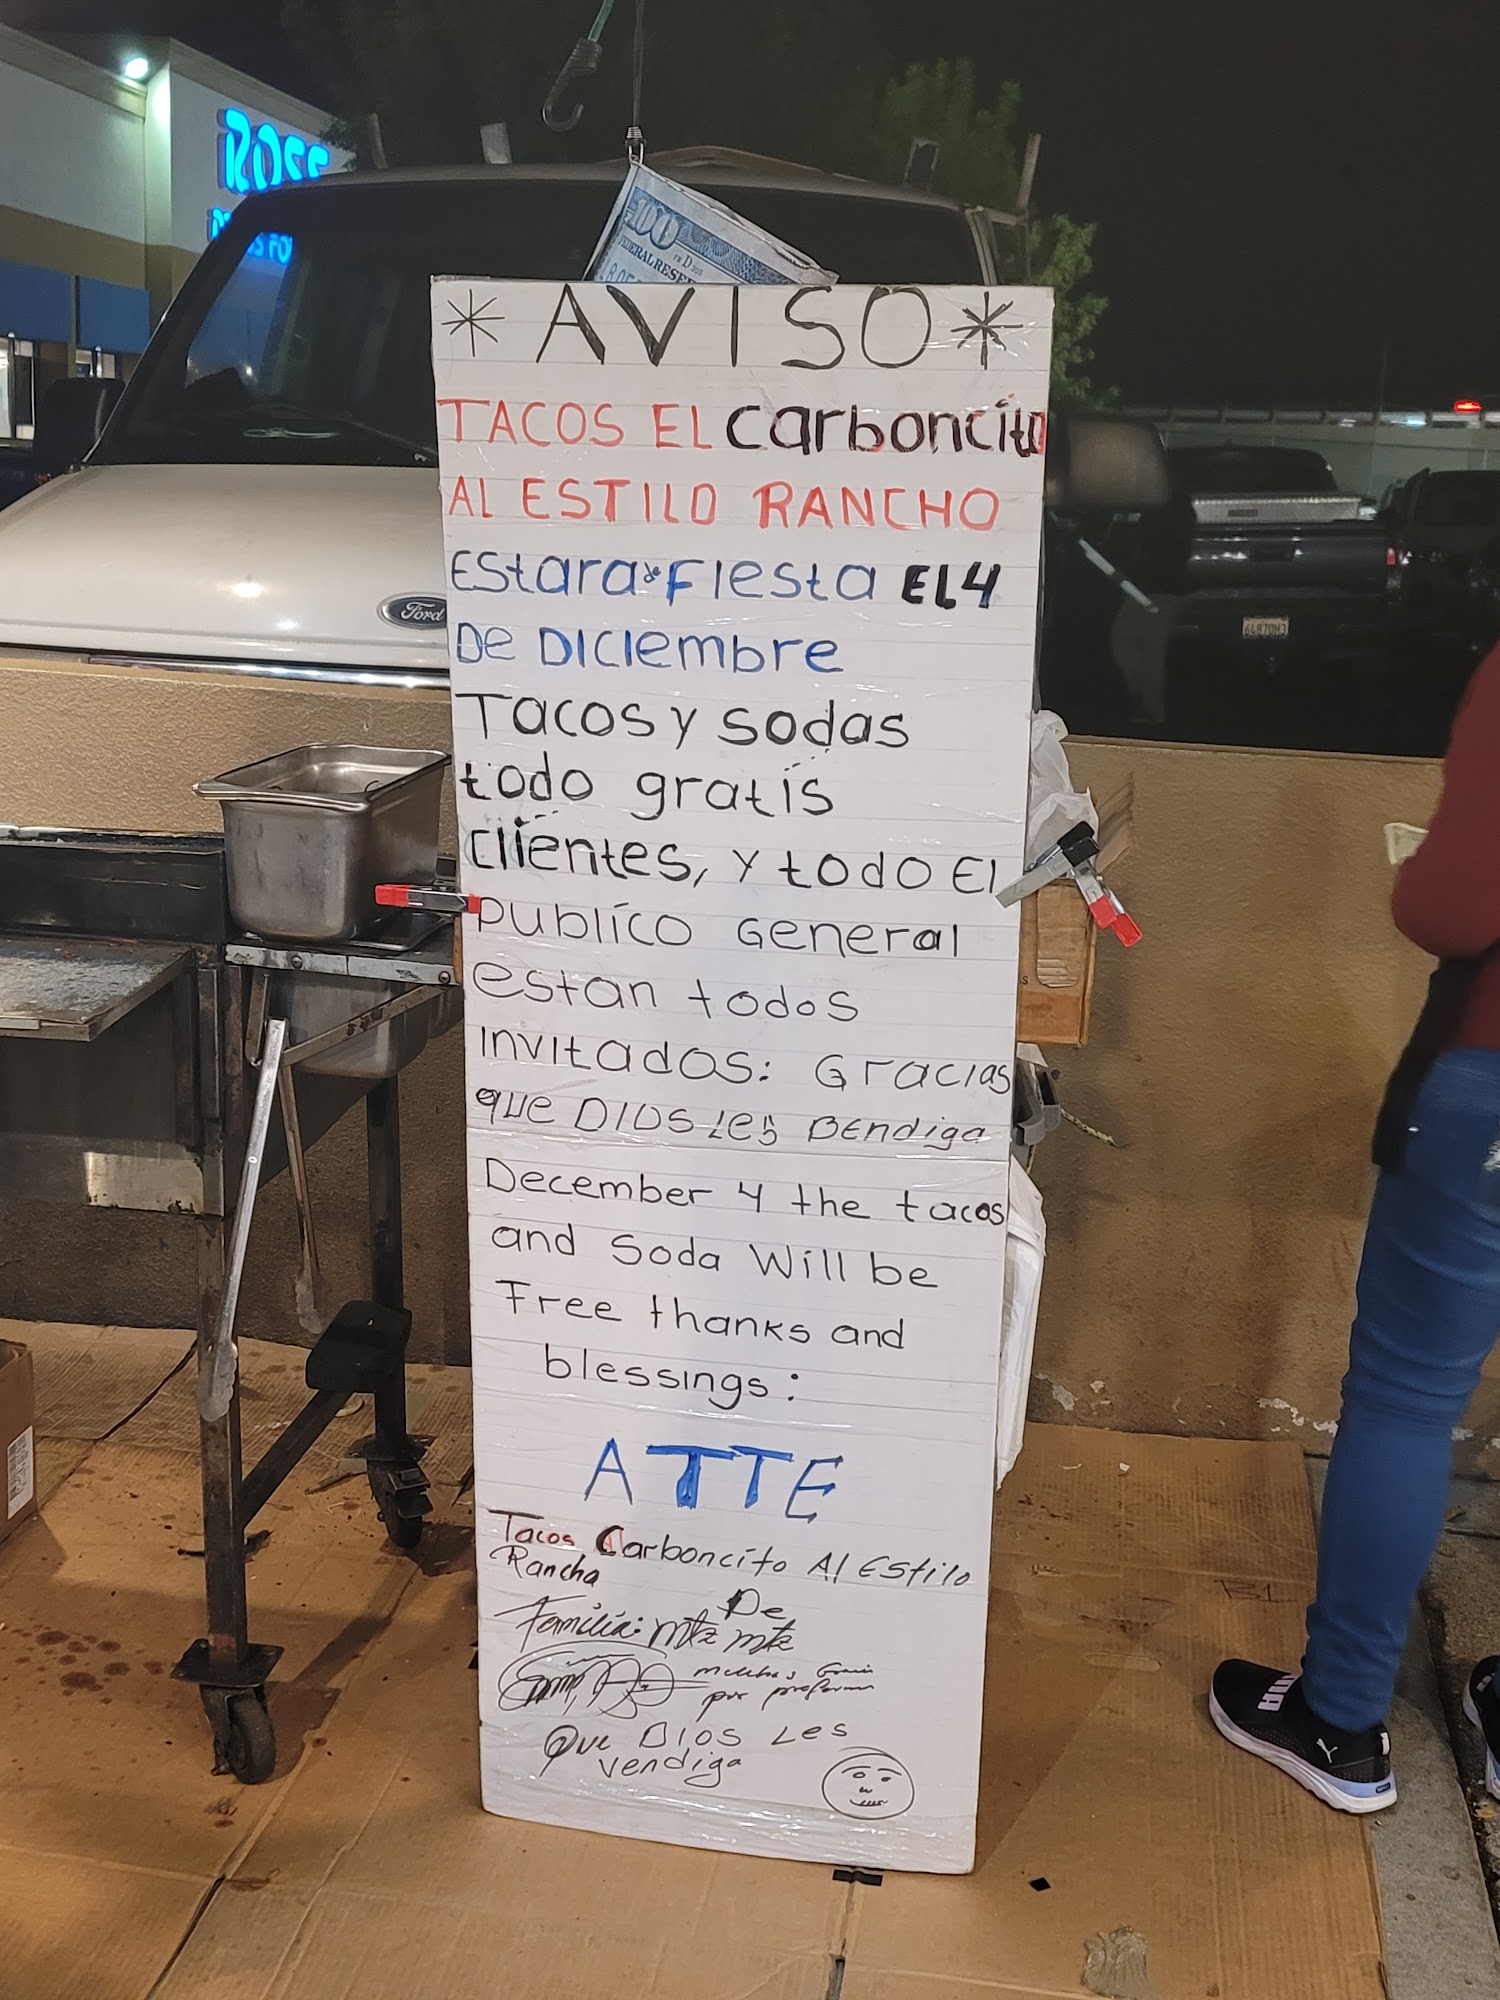 ROSS
100
FEDERAL RESE
* AVISO *
TACOS EL carboncito
AL ESTILO RANCHO
Estara de FIesta EL 4
De DICIembre
Tacos y sodas
todo gratis
clientes, y todo El
publico General
estan todos
INVITADOS: Gracias
que DIOS Les BEndiga
Ford
December 4 the tacos
and Soda Will be
Free thanks and
blessings:
ATTE
Tacos Carboncito Al Estilo
Rancho
De
Familia: mtz mtz
muchas
por
Que DIOS Les
vendiga
PUMA